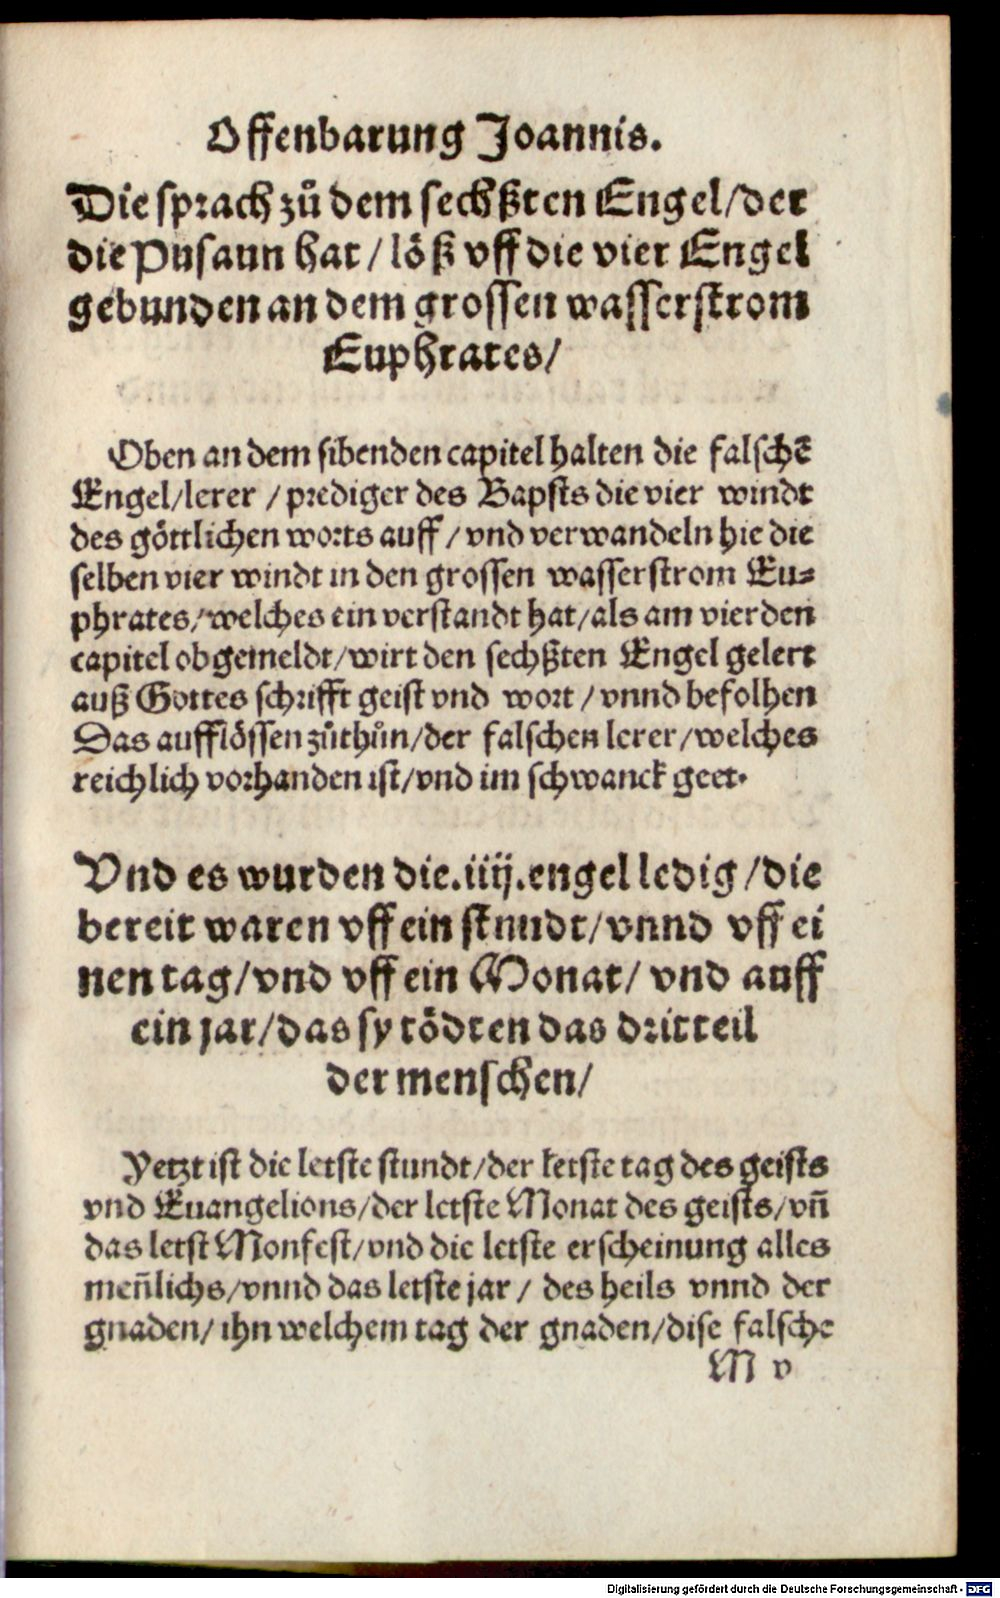 Offenbarung Joannis.
Die sprach zů dem sechßten Engel/der
die Pusaun hat/löß vff die vier Engel
gebunden an dem grossen wasserstrom
Euphrates/
Oben an dem sibenden capitel halten die falschē
Engel/lerer/prediger des Bapsts die vier windt
des göttlichen worts auff/vnd verwandeln hie die
selben vier windt in den grossen wasserstrom Eu⸗
phrates/welches ein verstandt hat/als am vierden
capitel obgemeldt/wirt den sechßten Engel gelert
auß Gottes schrifft geist vnd wort/vnnd befolhen
Das aufflössen zůthůn/der falschen lerer/welches
reichlich vorhanden ist/vnd im schwanck geet.
Vnd es wurden die.iiij.engel ledig/die
bereit waren vff ein stnudt/vnnd vff ei
nen tag/vnd vff ein Monat/ vnd auff
ein jar/das sy tödten das dritteil
der menschen/
Yetzt ist die letste stundt/der letste tag des geists
vnd Euangelions/der letste Monat des geists/vn̄
das letst Monfest/vnd die letste erscheinung alles
men̄lichs/vnnd das letste jar/ des heils vnnd der
gnaden/ ihn welchem tag der gnaden/dise falsche
M v
Digitalisierung gefördert durch die Deutsche Forschungsgemeinschaft - DFG